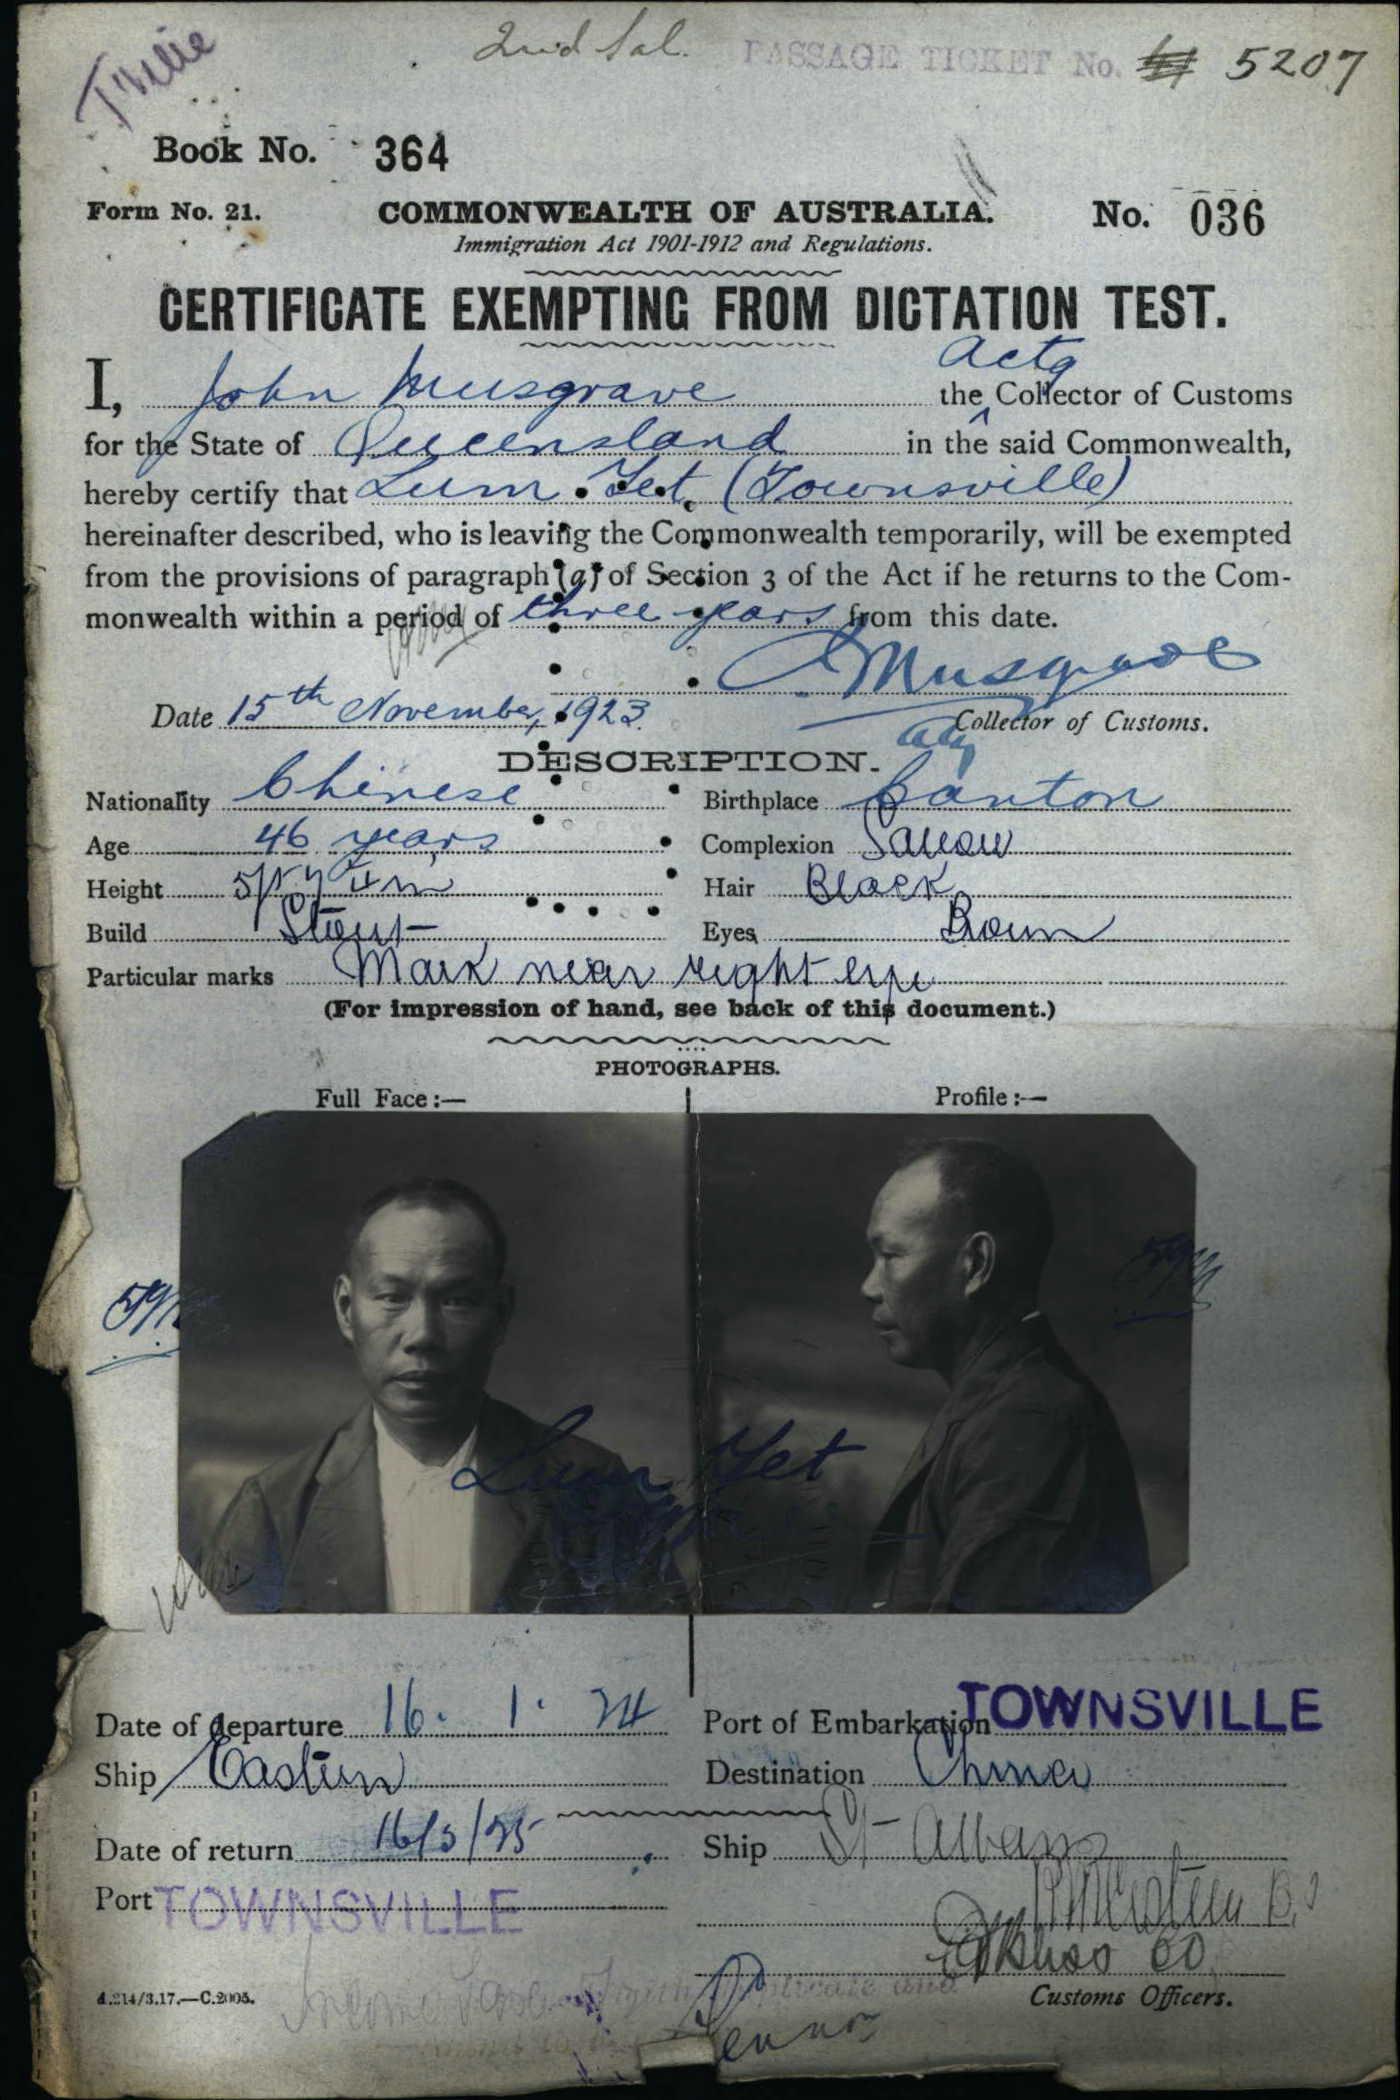 2nd Sal. PASSAGE TICKET No. 5207
Book No. 364
Form No. 21. COMMONWEALTH OF AUSTRALIA. No. 036
Immigration Act 1901-1912 and Regulations.
CERTIFICATE EXEMPTING FROM DICTATION TEST.
Actg
I, John Musgrave the Collector of Customs
for the State of Queensland in the said Commonwealth,
hereby certify that Lum Yet (Townsville)
hereinafter described, who is leaving the Commonwealth temporarily, will be exempted
from the provisions of paragraph (a) of Section 3 of the Act if he returns to the Com-
monwealth within a period of three years from this date.
J. Musgrave
Date 15th November, 1923. Actg Collector of Customs.
DESCRIPTION.
Nationality Chinese Birthplace Canton
Age 46 years Complexion Sallow
Height Hair Black
Build Stout Eyes Brown
Particular marks Mark near right eye
(For impression of hand, see back of this document.)
PHOTOGRAPHS.
Full Face :— Profile :—
Lum Yet
Date of departure 16. 1. 24 Port of Embarkation TOWNSVILLE
Ship Eastern Destination China
Date of return 16/3/25 Ship St Albans
Port TOWNSVILLE
A.214/3.17.—C.2005. Customs Officers.